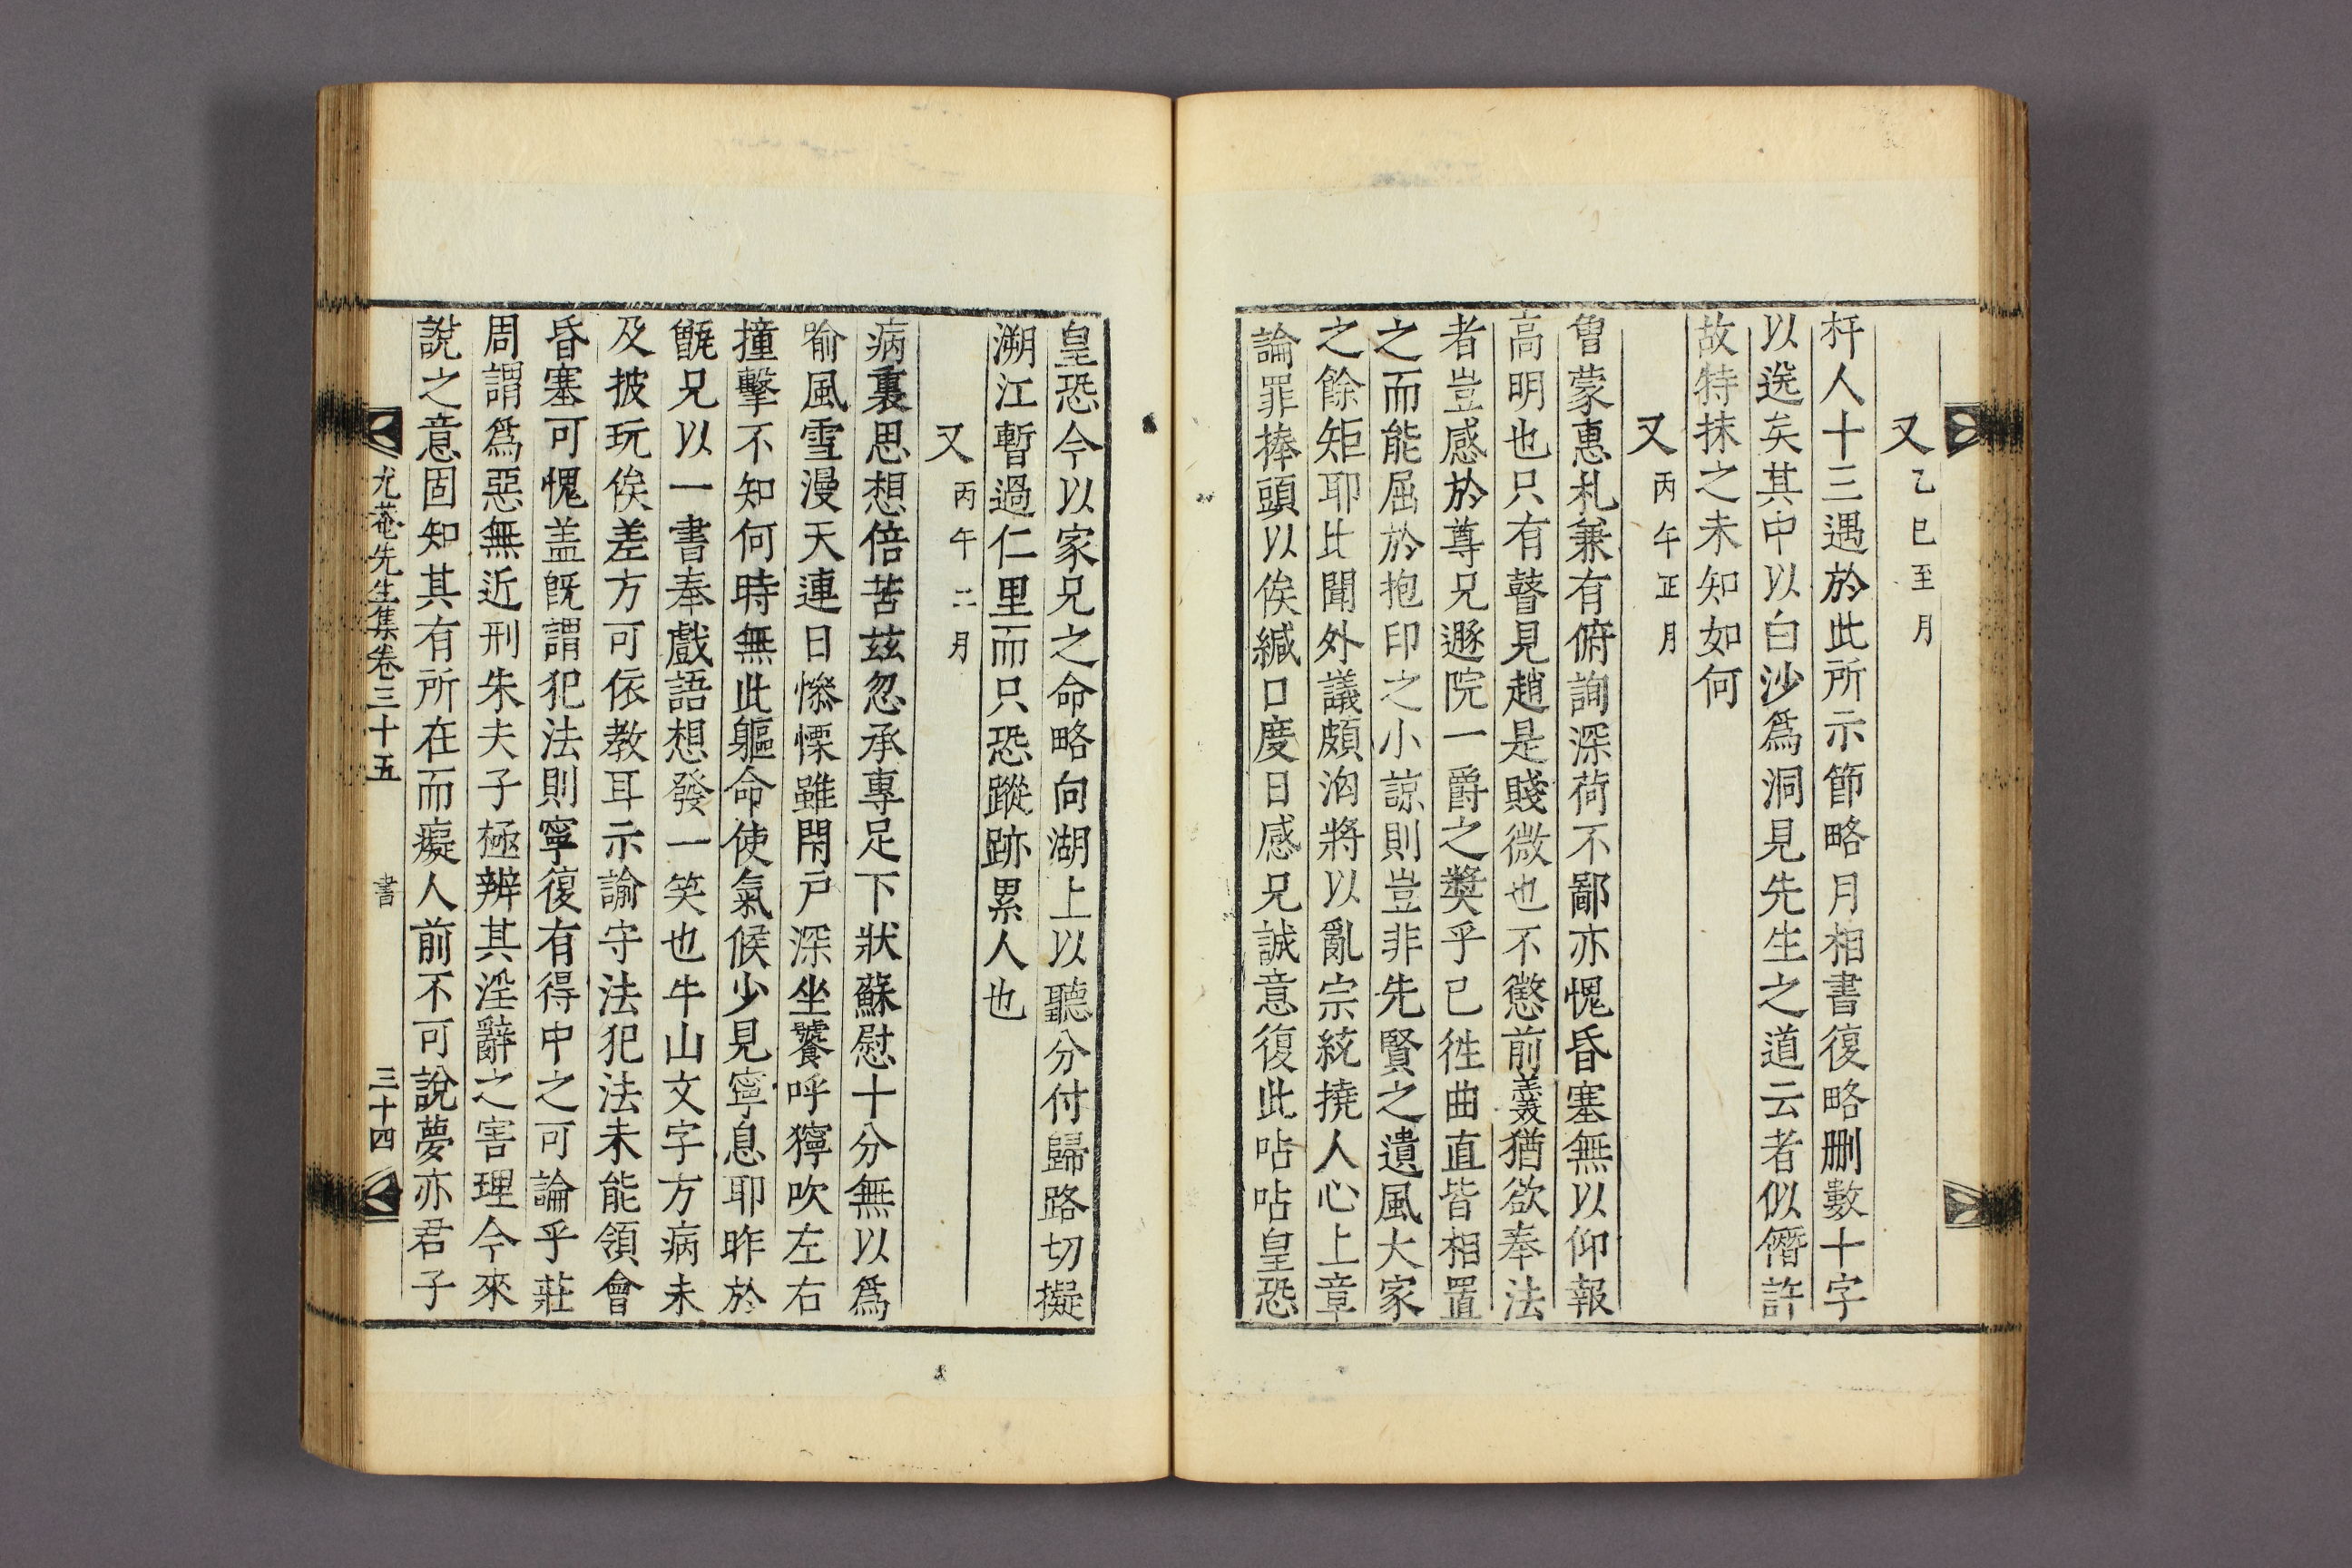 又 乙巳至月
杆人十三遇於此所示節略月相書復略刪數十字
以送矣其中以白沙爲洞見先生之道云者似僭許
故特抹之未知如何
又 丙午正月
曾蒙惠札兼有俯詢深荷不鄙亦愧昏塞無以仰報
高明也只有瞽見趙是賤微也不懲前羲猶欲奉法
者豈感於尊兄遯院一爵之獎乎已徃曲直皆相置
之而能屈於抱印之小諒則豈非先賢之遺風大家
之餘矩耶比聞外議頗洶將以亂宗統撓人心上章
論罪捧頭以俟緘口度日感兄誠意復此呫呫皇恐
皇恐今以家兄之命略向湖上以聽分付歸路切擬
溯江暫過仁里而只恐蹤跡累人也
又 丙午二月
病裏思想倍苦玆忽承專足下狀蘇慰十分無以爲
喻風雪漫天連日慘慄雖閉戶深坐饕呼獰吹左右
撞擊不知何時無此軀命使氣候少見寧息耶昨於
甑兄以一書奉戲語想發一笑也牛山文字方病未
及披玩俟差方可依教耳示諭守法犯法未能領會
昏塞可愧盖旣謂犯法則寧復有得中之可論乎莊
周謂爲惡無近刑朱夫子極辨其淫辭之害理今來
說之意固知其有所在而癡人前不可說夢亦君子
尤菴先生集卷三十五 書 三十四